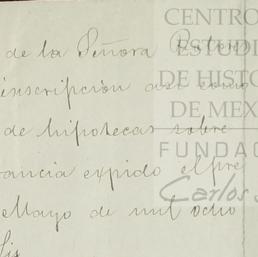 de la Señora
inscripción así como
de hipotecas sobre
expido el pre
Mayo de mil ocho
CENTRO
ESTUDI
DE HISTO
DE MEX
FUNDAC
Carlos S